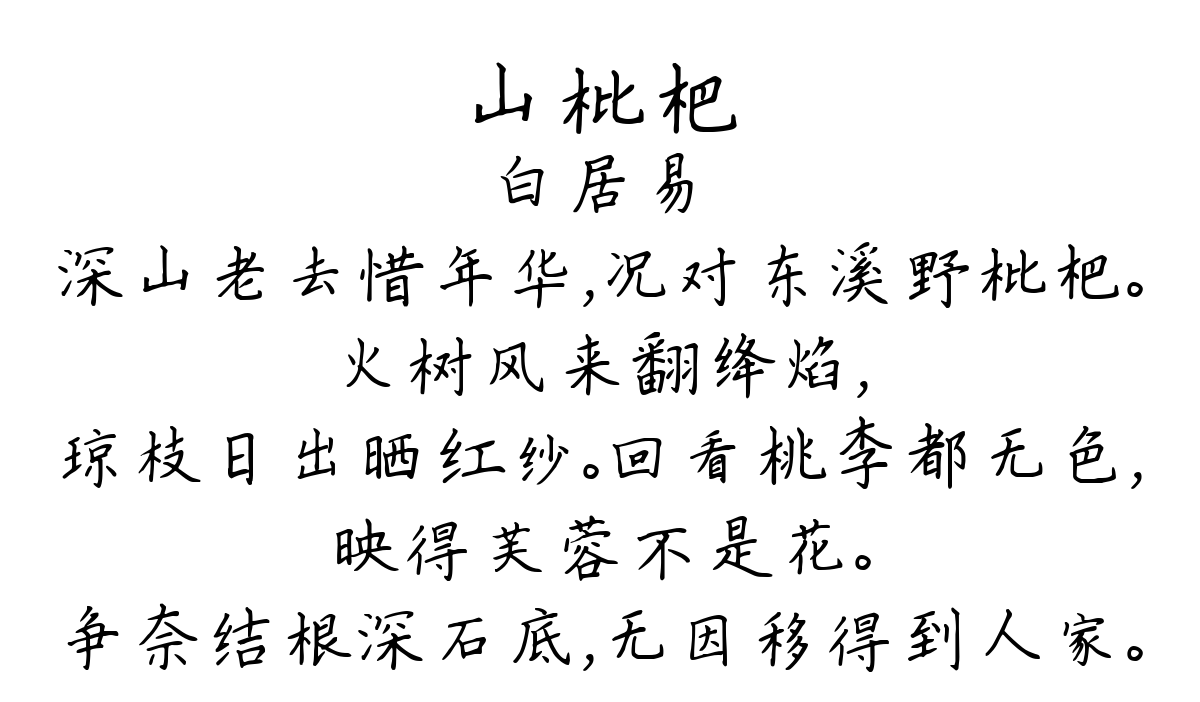 山枇杷
白居易
深山老去惜年华,况对东溪野枇杷。
火树风来翻绛焰,
琼枝日出晒红纱。回看桃李都无色,
映得芙蓉不是花。
争奈结根深石底,无因移得到人家。